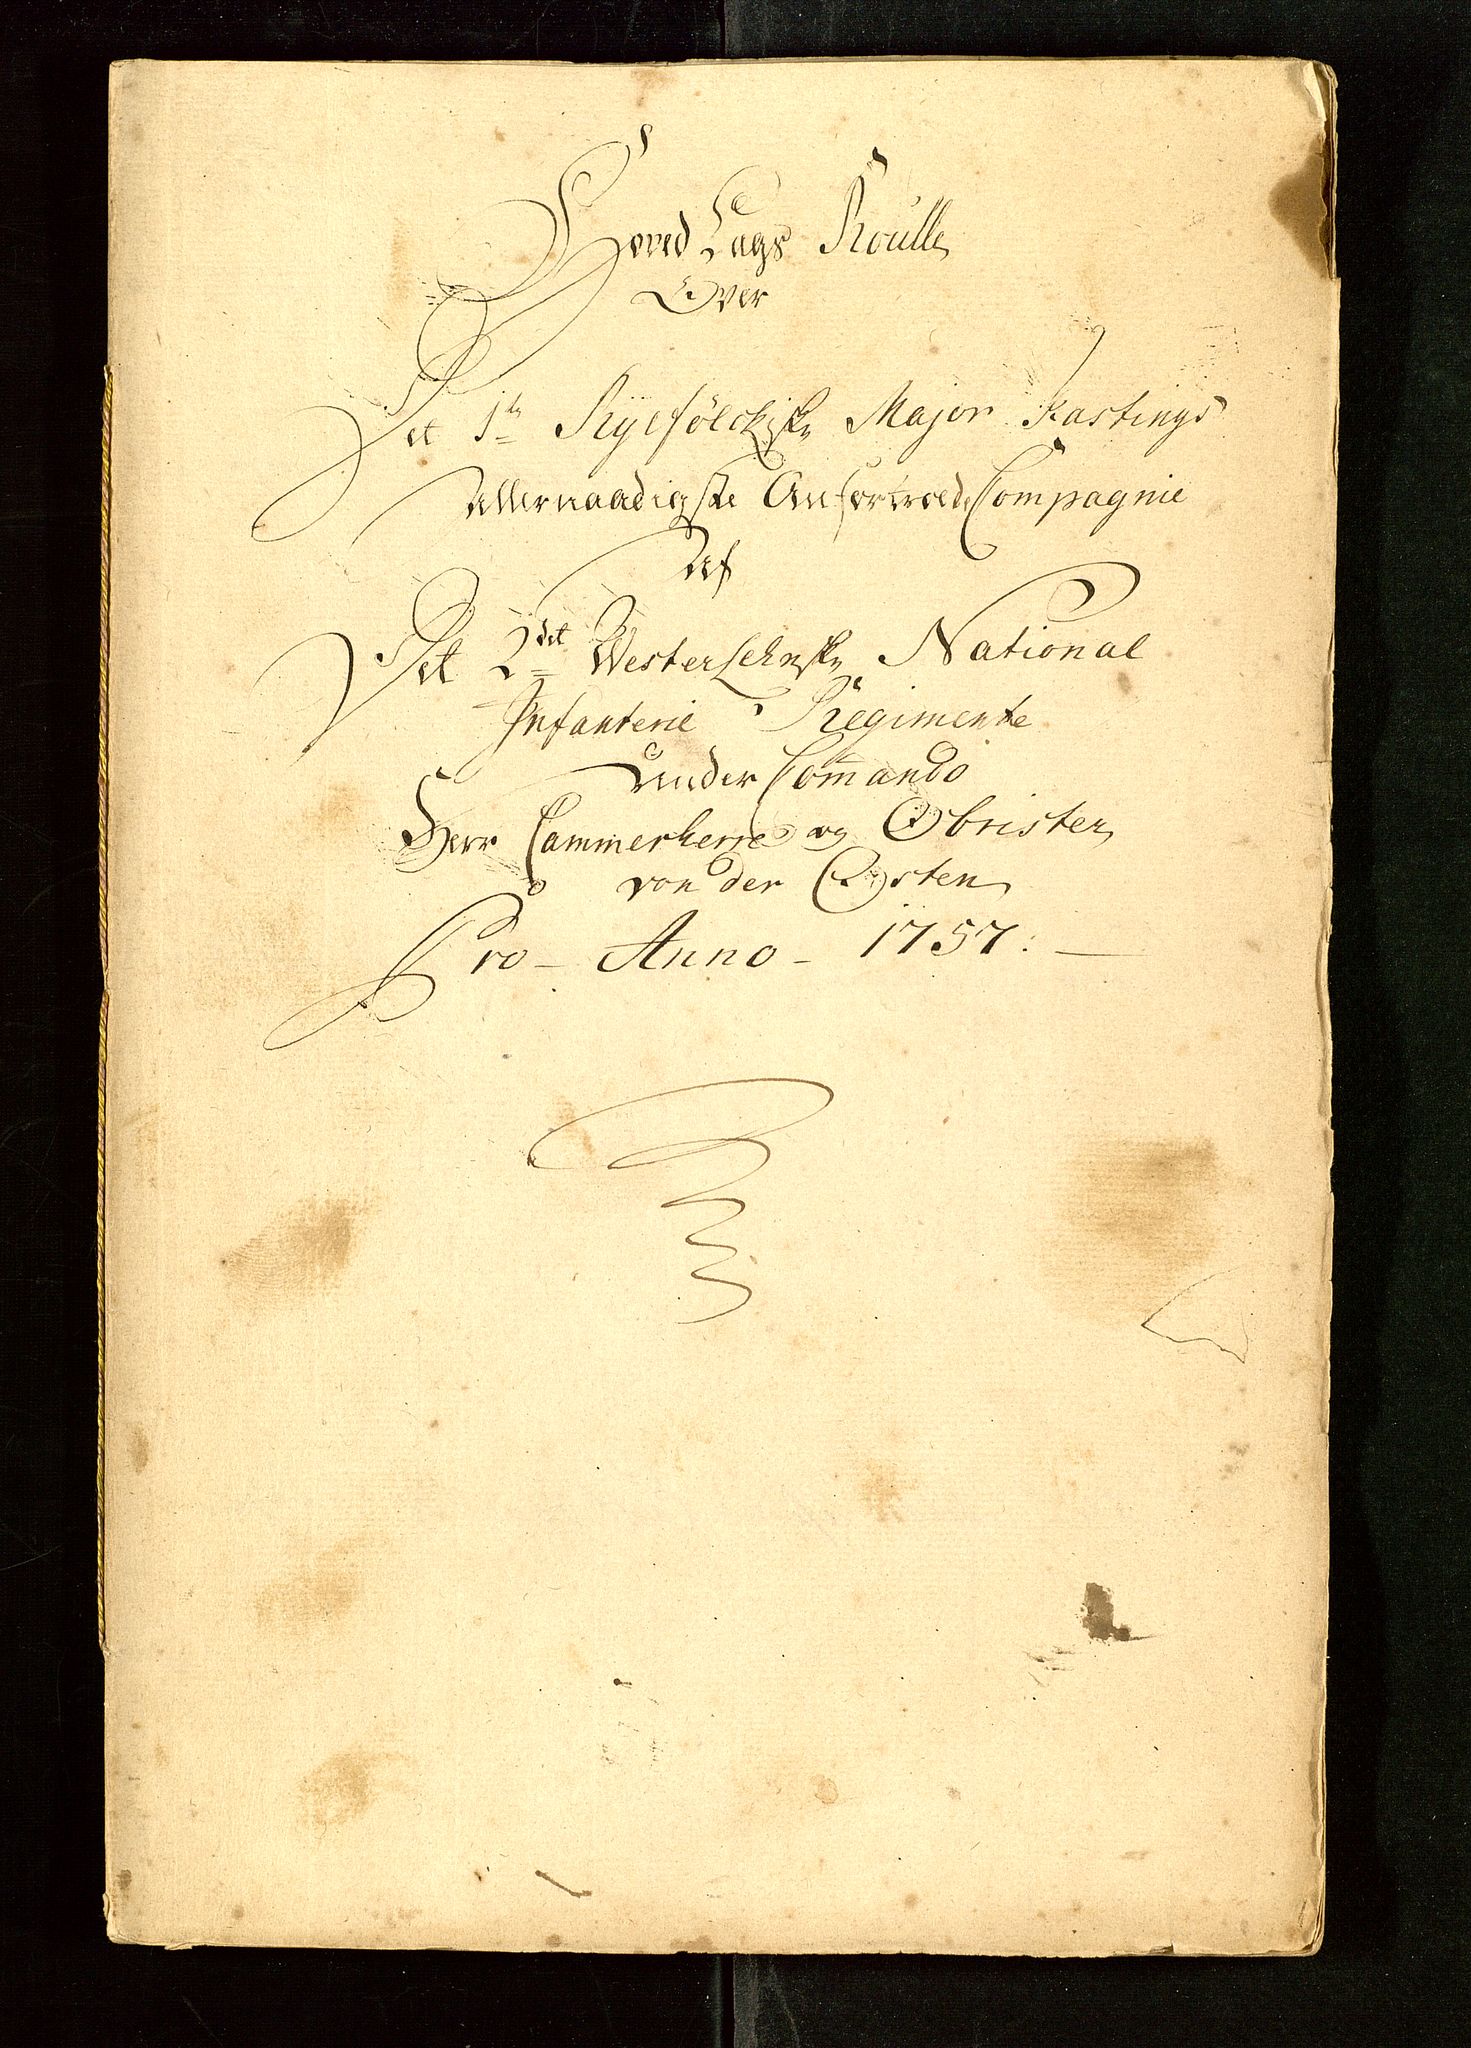 Hoved Lags Roulle
Over
Det 1te Ryefölckiske Major Kastings
Allernaadigste Anfortroede Compagnie
Af
Det 2det Westerlehnske National
Infanterie Regimente
Under Commando
Herr Cammerherre og Obrister
von der Osten
Pro - Anno - 1757: